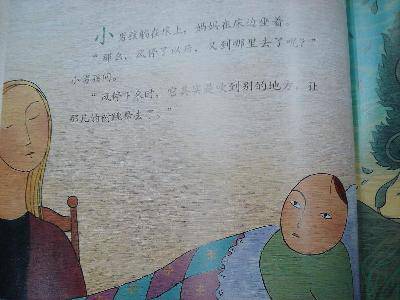 小男孩躺在床上，妈妈在床边坐着。
“那么，风停了以后，又到哪里去了呢？”
小男孩问。
“风停下来时，它其实是吹到别的地方，让
那儿的树跳舞去了。”